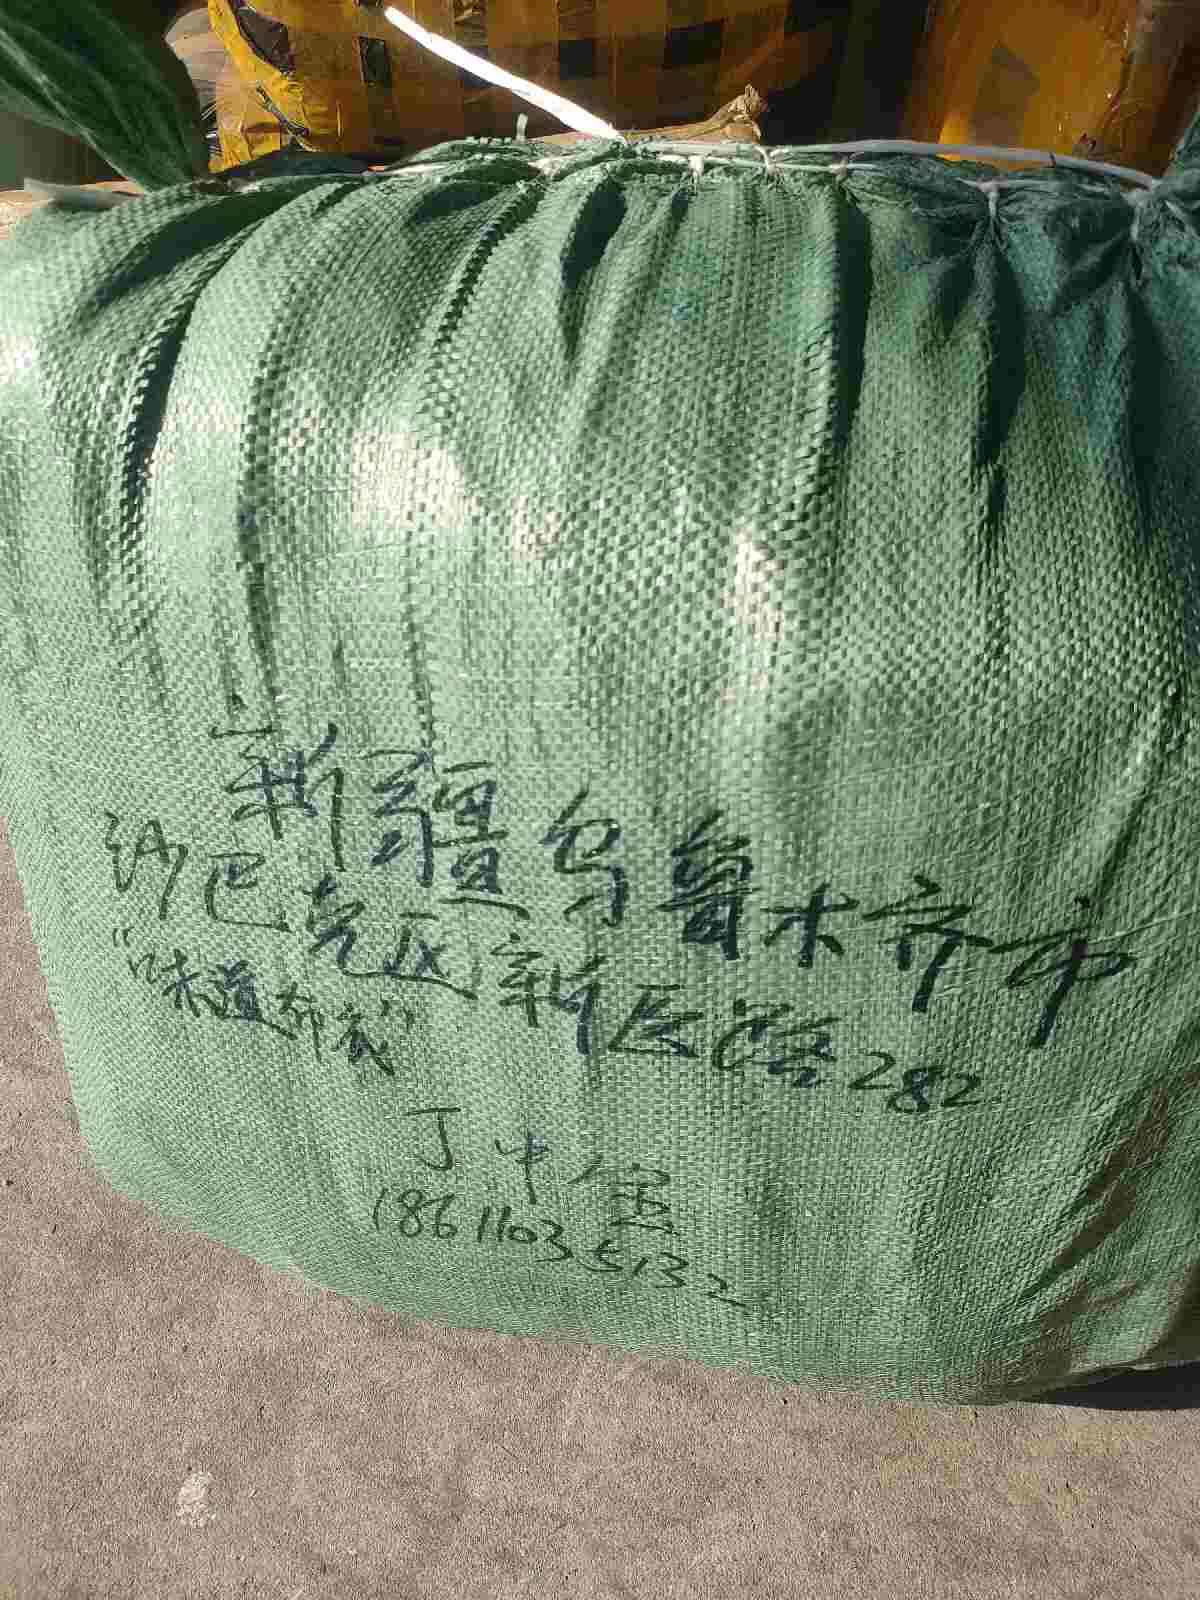 新疆乌鲁木齐市
沙巴克区新医路282
"味道部落"
丁中宝
18611035132